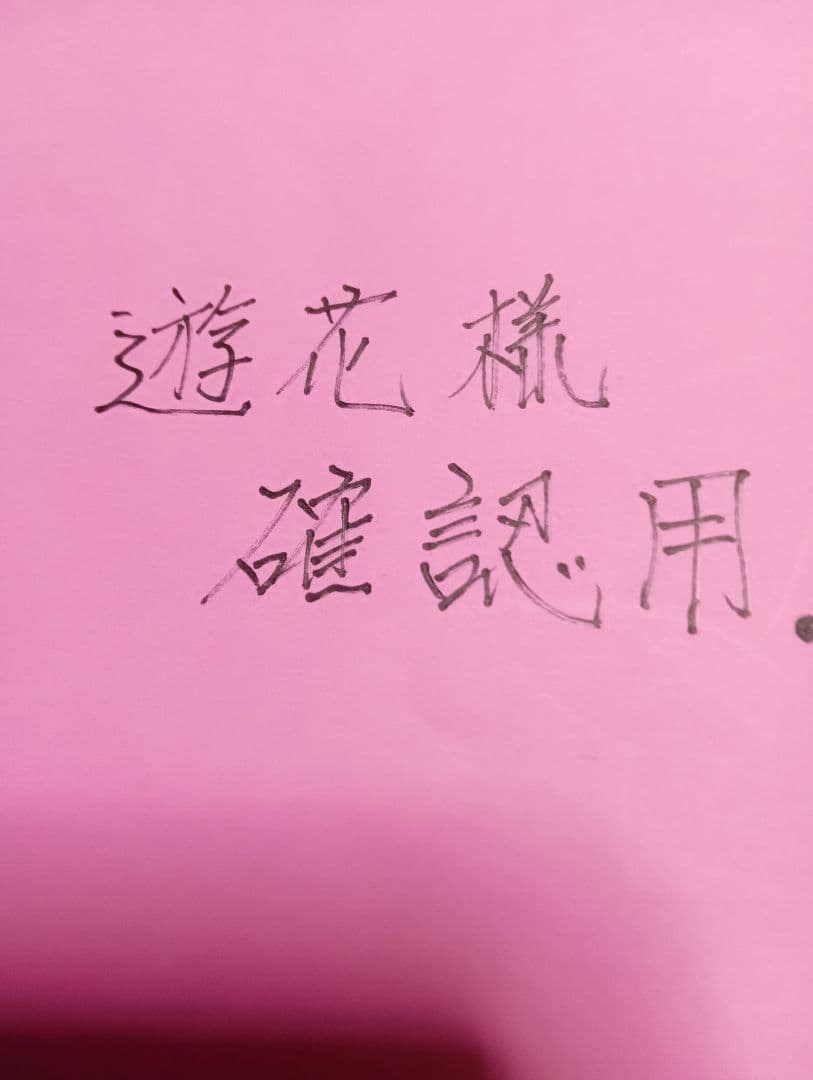 遊花様
確認用.